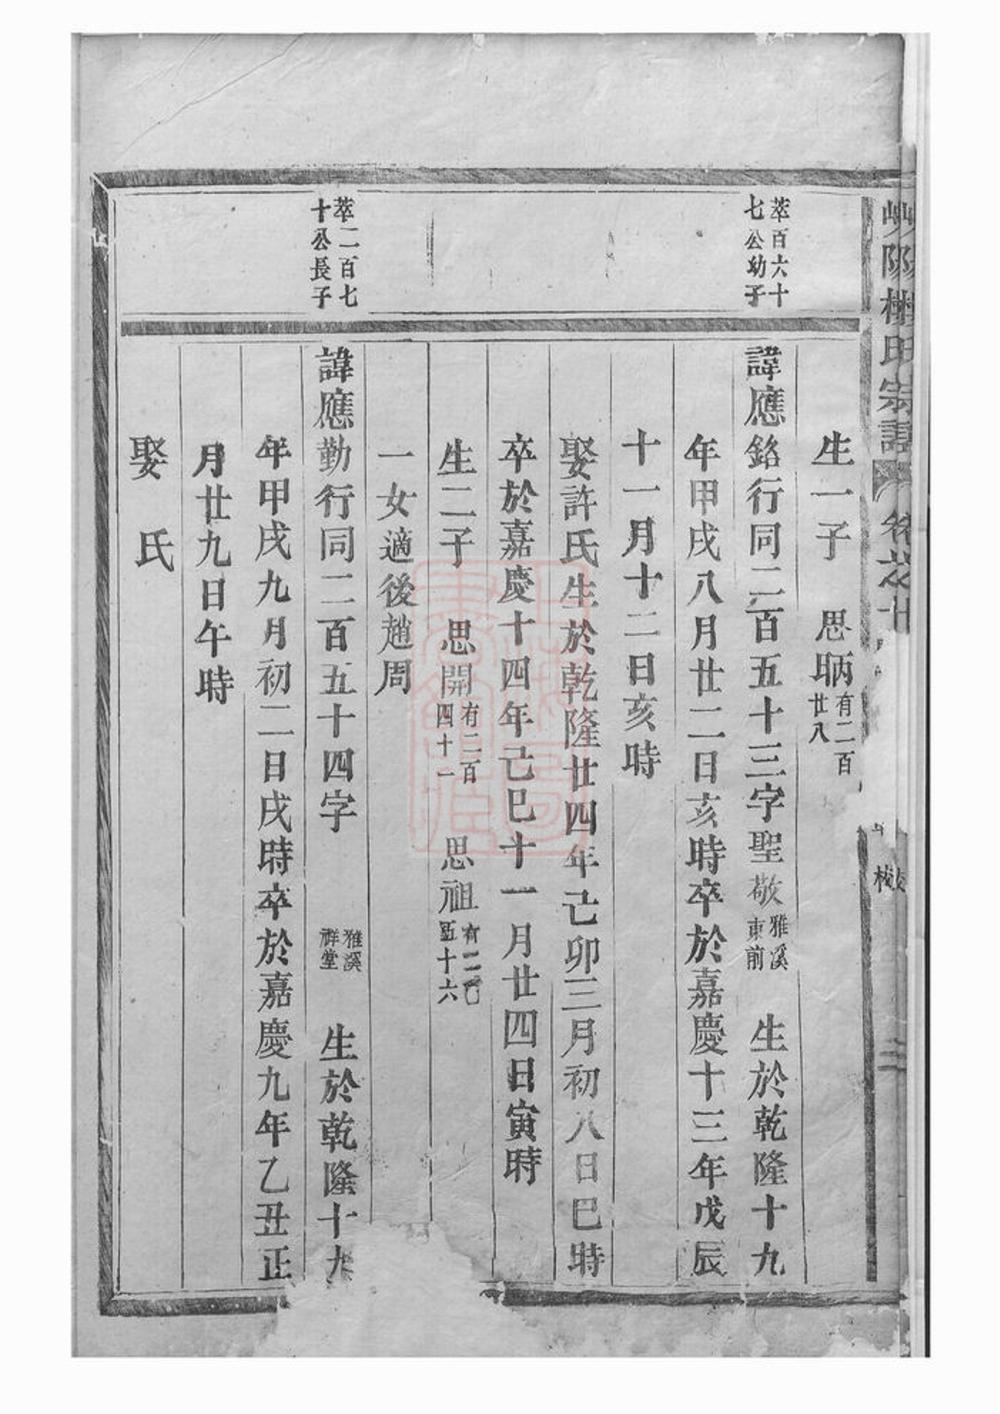 生一子 思昞有二百廿八
萃百六十七公幼子
諱應銘行同二百五十三字聖敬雅溪東前 生於乾隆十九
年甲戌八月廿二日亥時卒於嘉慶十三年戊辰
十一月十二日亥時
娶許氏生於乾隆廿四年己卯三月初八日巳時
卒於嘉慶十四年己巳十一月廿四日寅時
生二子 思開有二百四十一 思祖有二百五十六
一女適後趙周
萃二百七十公長子
諱應勤行同二百五十四字 雅溪祥堂 生於乾隆十九
年甲戌九月初二日戌時卒於嘉慶九年乙丑正
月廿九日午時
娶 氏